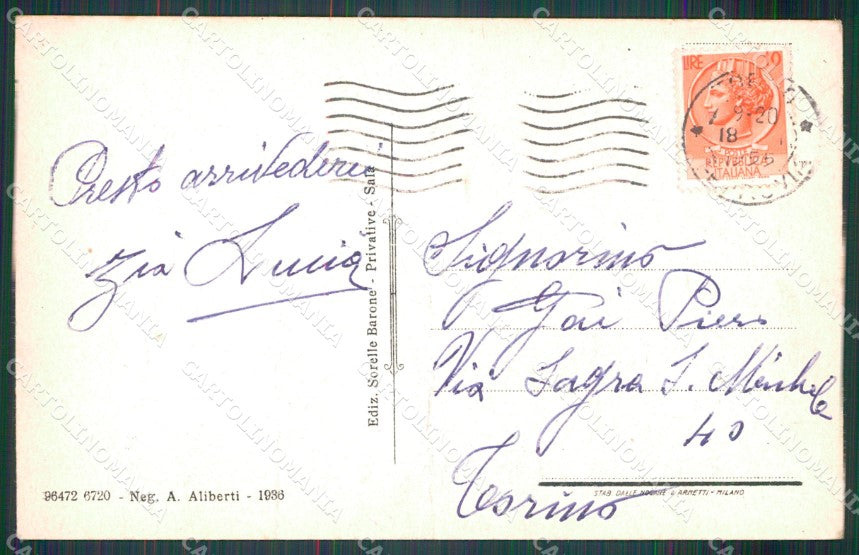 Presto arrivederci
Zia Lucia
Ediz. Sorelle Barone - Privative - Sala
96472 6720 - Neg. A. Aliberti - 1936
LIRE 10
REPVBBLICA
ITALIANA
7 9-20
18
Signorino
Gai Piero
Via Sagra S. Michele
40
Torino
STAB. DALLE NOGARE & ARMETTI - MILANO
CARTOLINOMANIA